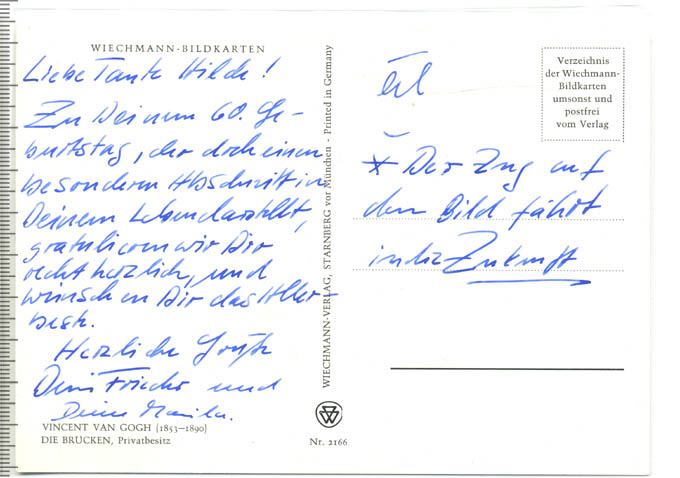 WIECHMANN-BILDKARTEN
Liebe Tante Hilde!
Zu Deinem 60. Ge-
burtstag, der doch einen
besonderen Abschnitt in
Deinem Leben darstellt,
gratulieren wir Dir
recht herzlich, und
wünschen Dir das Aller-
beste.
Herzliche Grüße
Dein und
Deine
VINCENT VAN GOGH (1853—1890)
DIE BRUCKEN, Privatbesitz
WIECHMANN-VERLAG, STARNBERG vor München · Printed in Germany
Nr. 2166
Verzeichnis
der Wiechmann-
Bildkarten
umsonst und
postfrei
vom Verlag
* Der Zug auf
dem Bild fährt
in die Zukunft